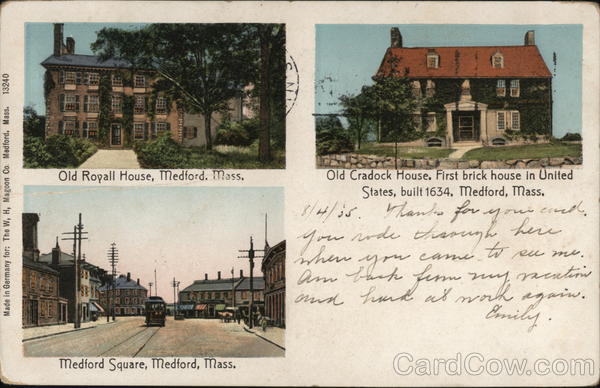 Old Royall House, Medford. Mass.
Old Cradock House. First brick house in United
States, built 1634, Medford, Mass.
8/4/05. Thanks for your card.
You rode through here
when you came to see me.
Am back from my vacation
and hard at work again.
Emily.
Medford Square, Medford, Mass.
Made in Germany for: The W, H, Magoon Co Medford, Mass. 13240
CardCow.com